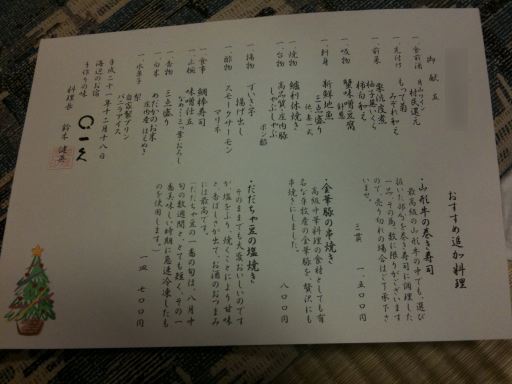 御献立
一、食前酒 月山ワイン
村民還元
一、先付 もって菊
みぞれ和え
一、前菜
柚子釜いくら
柿旬和え
一、吸物 蟹味噌豆腐
一、刺身 新鮮地魚
三点盛り
一、焼物 鱸利休焼き
一、台物 高品質庄内豚
しゃぶしゃぶ
ポン酢
一、揚物 ずいき芋
揚げ出し
一、酢物 スモークサーモン
マリネ
一、食事 鯛棒寿司
一、止椀 味噌仕立
一、香物 三点盛り
一、白米 めだかのお米
一、水菓子 梨 庄内産
自家製プリン
バニラアイス
平成二十一年十二月十八日
海辺のお宿
手作りの味 一久
料理長 鈴木
おすすめ追加料理
・山形牛の巻き寿司
最高級の山形牛の中でも、選び
抜いた部分を巻き寿司に調理した
一品。その為、数に限りがございます
ので、売り切れの場合はご了承下さ
いませ。
三貫 一、五〇〇円
・金華豚の串焼き
高級中華料理の食材としても有
名な平牧産の金華豚を、贅沢にも
串焼きにしました。
八〇〇円
・だだちゃ豆の塩焼き
そのままでも大変おいしいのです
が、塩をふり、焼くことにより甘味
と、香ばしさが出て、お酒のおつまみ
には最高です。
「だだちゃ豆の一番の旬は、八月中
旬の数週間ととても短く、その一
番美味しい時期に急速冷凍したも
のを使用します。」
一皿 七〇〇円